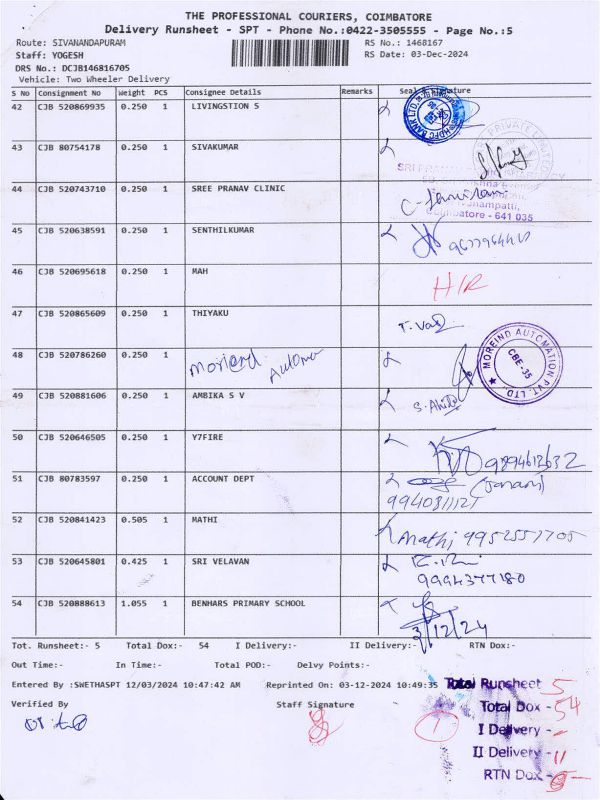 THE PROFESSIONAL COURIERS, COIMBATORE
Delivery Runsheet - SPT - Phone No.:0422-3505555 - Page No.:5
Route: SIVANANDAPURAM RS No.: 1468167
Staff: YOGESH RS Date: 03-Dec-2024
DRS No.: DCJB146816705
Vehicle: Two Wheeler Delivery
S No Consignment No Weight PCS Consignee Details Remarks Seal & Signature
42 CJB 520869935 0.250 1 LIVINGSTION S
HDFC BANK LTD.
43 CJB 80754178 0.250 1 SIVAKUMAR
PRIVATE
44 CJB 520743710 0.250 1 SREE PRANAV CLINIC
Coimbatore - 641 035
45 CJB 520638591 0.250 1 SENTHILKUMAR
46 CJB 520695618 0.250 1 MAH H/R
47 CJB 520865609 0.250 1 THIYAKU
48 CJB 520786260 0.250 1
MOREIND AUTOMATION PVT. LTD.
CBE-35
49 CJB 520881606 0.250 1 AMBIKA S V
50 CJB 520646505 0.250 1 Y7FIRE 9894612632
51 CJB 80783597 0.250 1 ACCOUNT DEPT
52 CJB 520841423 0.505 1 MATHI Mathi 9952557705
53 CJB 520645801 0.425 1 SRI VELAVAN
9994377180
54 CJB 520888613 1.055 1 BENHARS PRIMARY SCHOOL
3/12/24
Tot. Runsheet:- 5 Total Dox:- 54 I Delivery:- II Delivery:- RTN Dox:-
Out Time:- In Time:- Total POD:- Delvy Points:-
Entered By :SWETHASPT 12/03/2024 10:47:42 AM Reprinted On: 03-12-2024 10:49:35
Verified By Staff Signature
Total Runsheet 5
Total Dox - 54
1
I Delivery -
II Delivery - 11
RTN Dox -